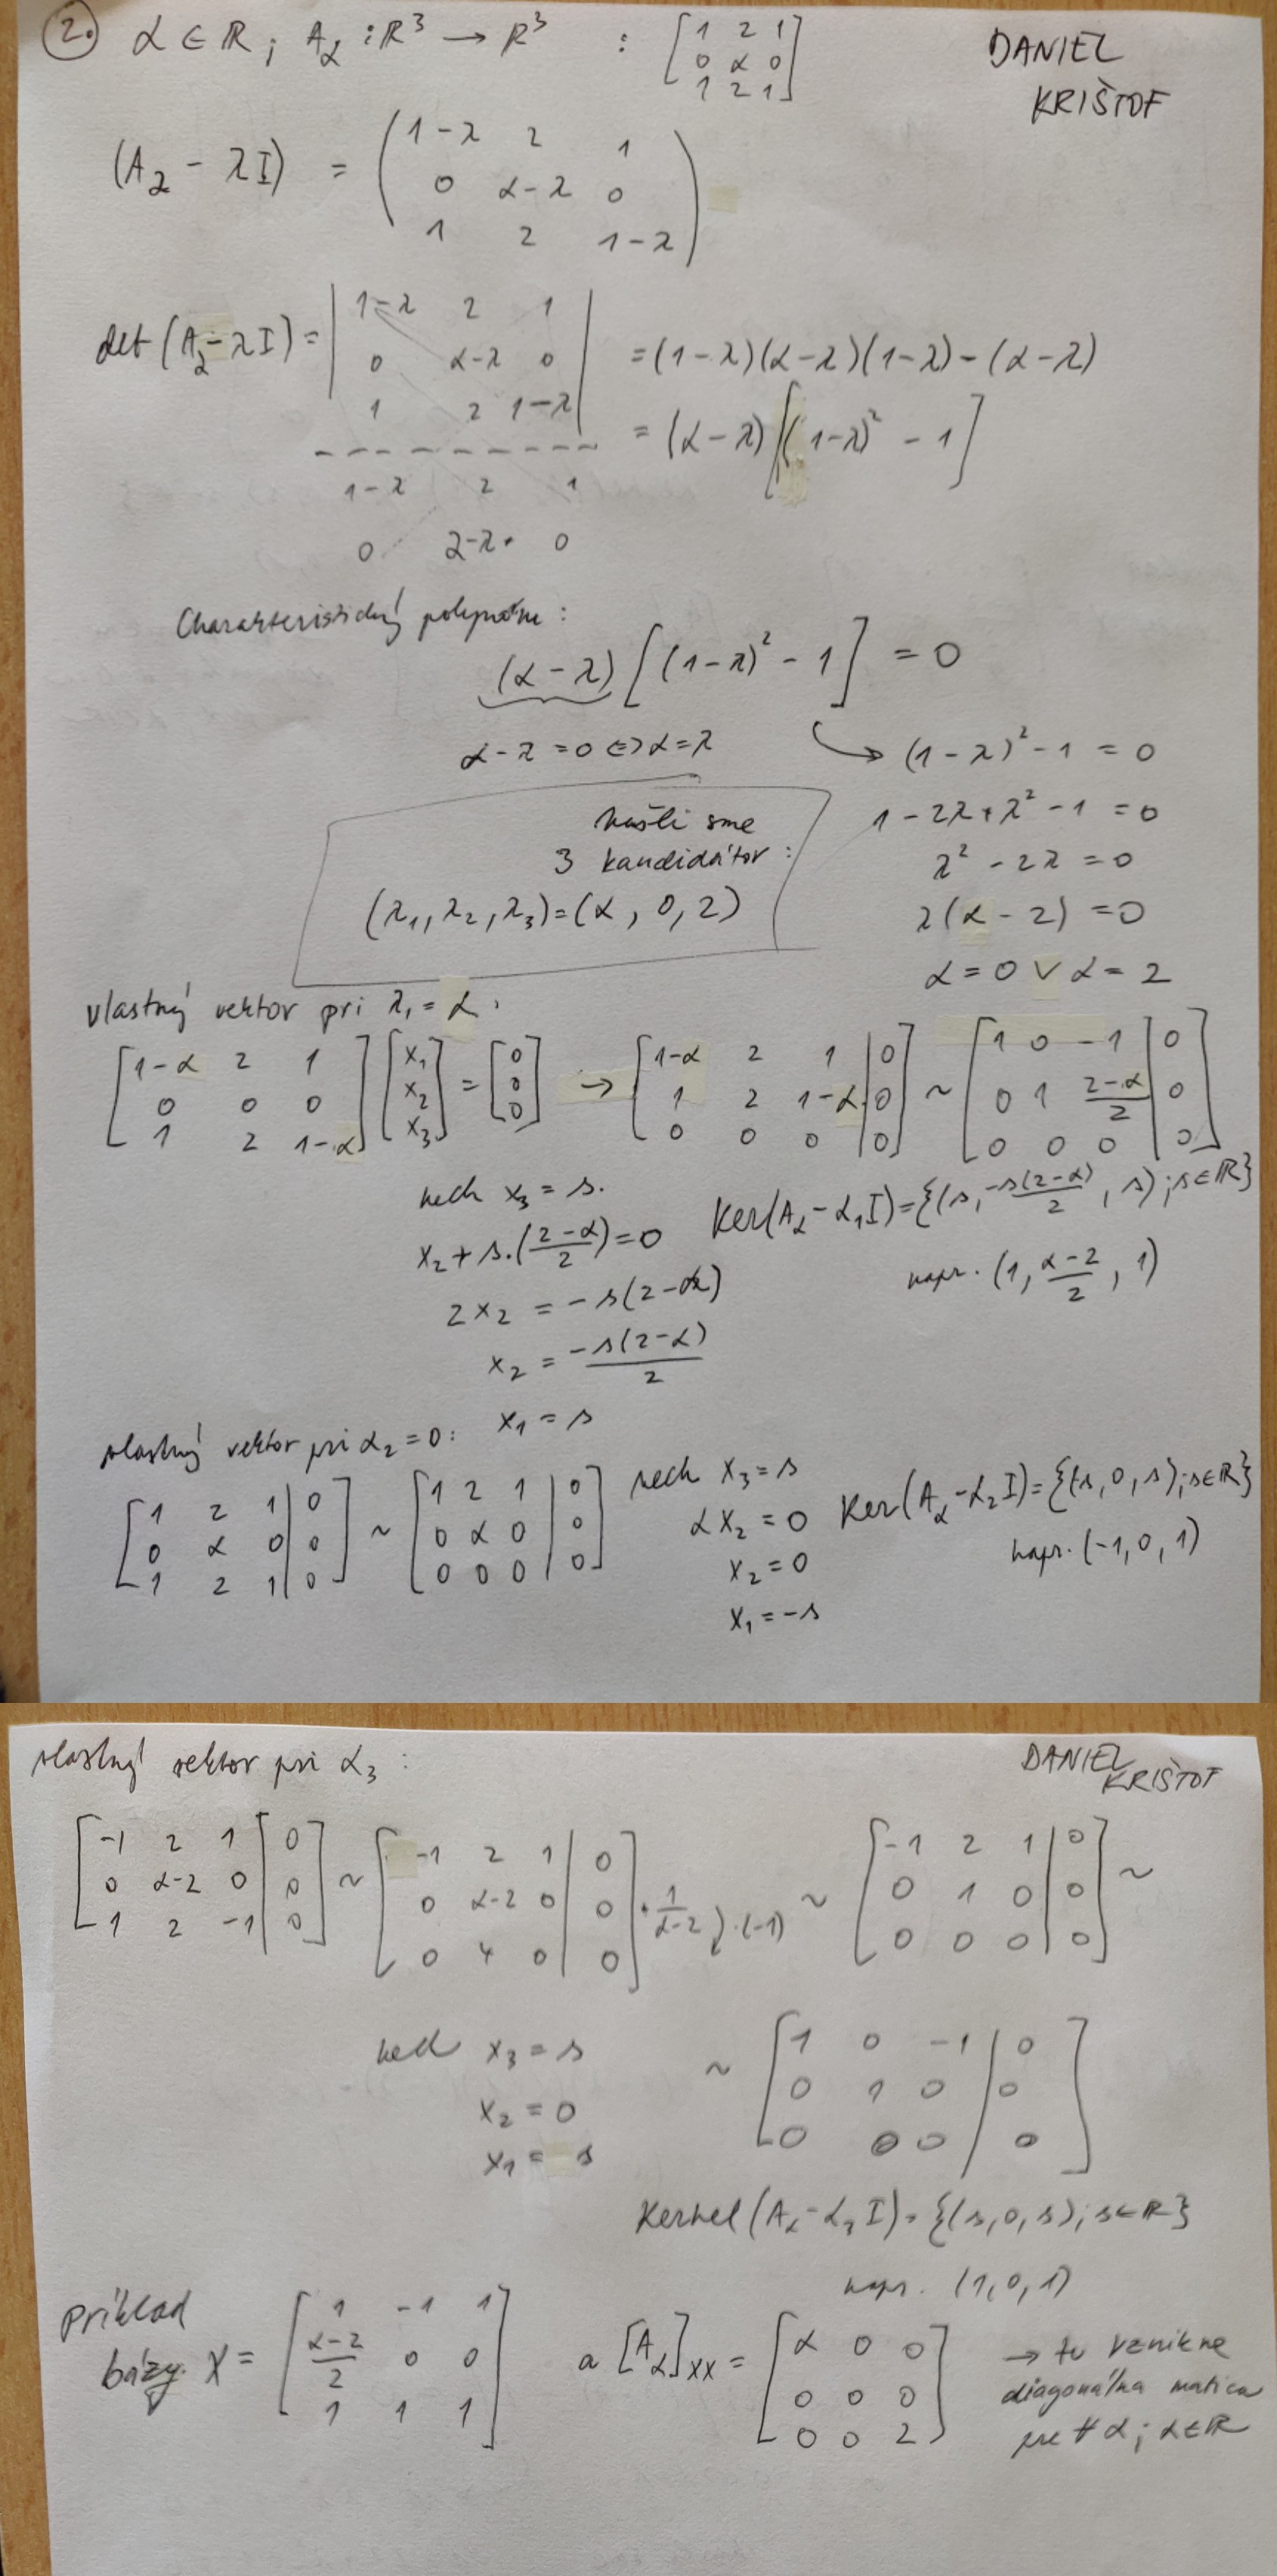 2. α ∈ R ; A_α : R³ → R³ : [1 2 1; 0 α 0; 1 2 1]
DANIEL
KRIŠTOF
(A_α - λI) = (1-λ 2 1; 0 α-λ 0; 1 2 1-λ)
det(A_α - λI) = |1-λ 2 1; 0 α-λ 0; 1 2 1-λ| = (1-λ)(α-λ)(1-λ) - (α-λ)
= (α-λ)[(1-λ)² - 1]
1-λ 2 1
0 α-λ 0
Charakteristický polynóm :
(α-λ)[(1-λ)² - 1] = 0
α-λ = 0 ⇔ α = λ
→ (1-λ)² - 1 = 0
1 - 2λ + λ² - 1 = 0
λ² - 2λ = 0
λ(α - 2) = 0
α = 0 ∨ α = 2
našli sme
3 kandidátov :
(λ₁, λ₂, λ₃) = (α, 0, 2)
vlastný vektor pri λ₁ = α :
[1-α 2 1; 0 0 0; 1 2 1-α] [x₁; x₂; x₃] = [0; 0; 0] → [1-α 2 1 | 0; 1 2 1-α | 0; 0 0 0 | 0] ~ [1 0 -1 | 0; 0 1 (2-α)/2 | 0; 0 0 0 | 0]
nech x₃ = s.
x₂ + s.((2-α)/2) = 0
2x₂ = -s(2-α)
x₂ = -s(2-α)/2
x₁ = s
Ker(A_α - α₁I) = {(s, -s(2-α)/2, s); s∈R}
napr. (1, (α-2)/2, 1)
vlastný vektor pri α₂ = 0 :
[1 2 1 | 0; 0 α 0 | 0; 1 2 1 | 0] ~ [1 2 1 | 0; 0 α 0 | 0; 0 0 0 | 0]
nech x₃ = s
αx₂ = 0
x₂ = 0
x₁ = -s
Ker(A_α - α₂I) = {(-s, 0, s); s∈R}
napr. (-1, 0, 1)
vlastný vektor pri α₃ :
DANIEL
KRIŠTOF
[-1 2 1 | 0; 0 α-2 0 | 0; 1 2 -1 | 0] ~ [-1 2 1 | 0; 0 α-2 0 | 0; 0 4 0 | 0] · 1/(α-2) ·(-1) ~ [-1 2 1 | 0; 0 1 0 | 0; 0 0 0 | 0] ~
nech x₃ = s
x₂ = 0
x₁ = s
~ [1 0 -1 | 0; 0 1 0 | 0; 0 0 0 | 0]
Kernel(A_α - α₃I) = {(s, 0, s); s∈R}
napr. (1, 0, 1)
Príklad
bázy X = [1 -1 1; (α-2)/2 0 0; 1 1 1] a [A_α]_XX = [α 0 0; 0 0 0; 0 0 2]
→ tu vznikne
diagonálna matica
pre ∀α ; α∈R